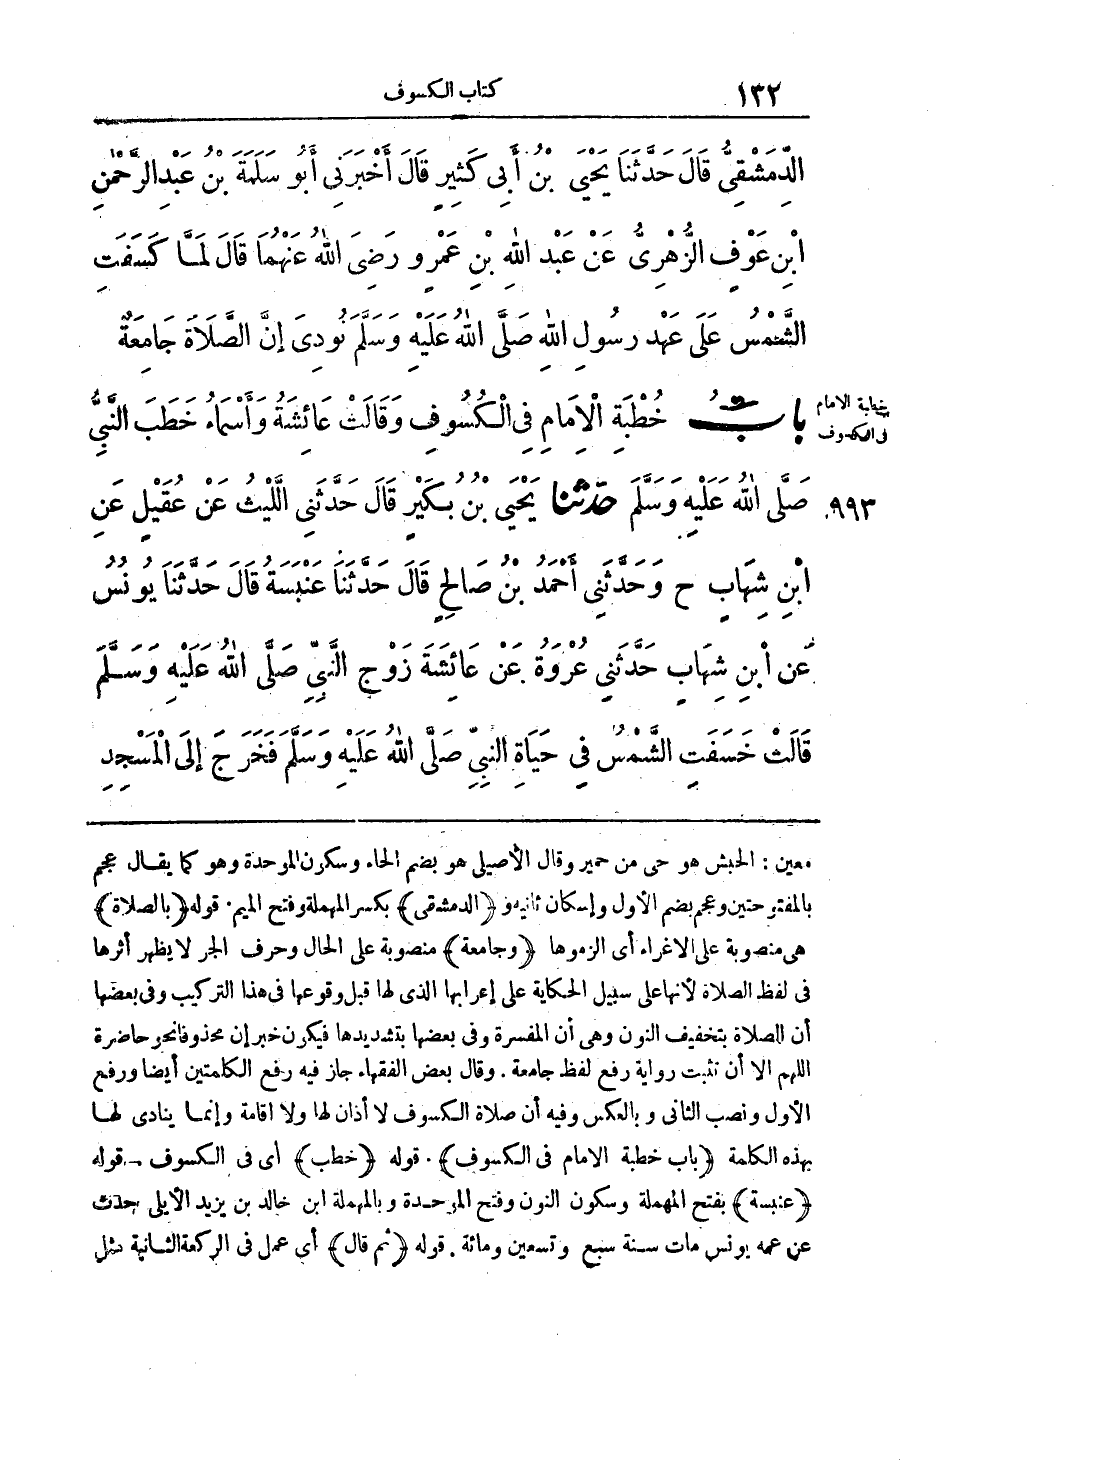 ١٣٢ كتاب الكسوف
الدِّمَشْقِيُّ قَالَ حَدَّثَنَا يَحْيَى بْنُ أَبِي كَثِيرٍ قَالَ أَخْبَرَنِي أَبُو سَلَمَةَ بْنُ عَبْدِ الرَّحْمٰنِ
ابْنِ عَوْفٍ الزُّهْرِىُّ عَنْ عَبْدِ اللهِ بْنِ عَمْرٍو رَضِىَ اللهُ عَنْهُمَا قَالَ لَمَّا كَسَفَتِ
الشَّمْسُ عَلَى عَهْدِ رَسُولِ اللهِ صَلَّى اللهُ عَلَيْهِ وَسَلَّمَ نُودِىَ إِنَّ الصَّلَاةَ جَامِعَةٌ
خطبة الامام
فى الكسوف
بَابُ خُطْبَةِ الْإِمَامِ فِى الْكُسُوفِ وَقَالَتْ عَائِشَةُ وَأَسْمَاءُ خَطَبَ النَّبِىُّ
٩٩٣ صَلَّى اللهُ عَلَيْهِ وَسَلَّمَ حَدَّثَنَا يَحْيَى بْنُ بُكَيْرٍ قَالَ حَدَّثَنِى اللَّيْثُ عَنْ عُقَيْلٍ عَنِ
ابْنِ شِهَابٍ ح وَحَدَّثَنِى أَحْمَدُ بْنُ صَالِحٍ قَالَ حَدَّثَنَا عَنْبَسَةُ قَالَ حَدَّثَنَا يُونُسُ
عَنِ ابْنِ شِهَابٍ حَدَّثَنِى عُرْوَةُ عَنْ عَائِشَةَ زَوْجِ النَّبِىِّ صَلَّى اللهُ عَلَيْهِ وَسَلَّمَ
قَالَتْ خَسَفَتِ الشَّمْسُ فِى حَيَاةِ النَّبِىِّ صَلَّى اللهُ عَلَيْهِ وَسَلَّمَ فَخَرَجَ إِلَى الْمَسْجِدِ
معين : الحبش هو حى من حمير وقال الأصيلى هو بضم الحاء وسكون الموحدة وهو كما يقال عجم
بالمفتوحتين وعجم بضم الأول وإسكان ثانيه و ﴿الدمشقى﴾ بكسر المهملة وفتح الميم. قوله ﴿بالصلاة﴾
هى منصوبة على الاغراء أى الزموها ﴿وجامعة﴾ منصوبة على الحال وحرف الجر لا يظهر أثرها
فى لفظ الصلاة لأنها على سبيل الحكاية على إعرابها الذى لها قبل وقوعها فى هذا التركيب وفى بعضها
أن الصلاة بتخفيف النون وهى أن المفسرة وفى بعضها بتشديدها فيكون خبر إن محذوفا نحو حاضرة
اللهم الا أن تثبت رواية رفع لفظ جامعة . وقال بعض الفقهاء جاز فيه رفع الكلمتين أيضا ورفع
الأول ونصب الثانى و بالعكس وفيه أن صلاة الكسوف لا أذان لها ولا اقامة وإنما ينادى لها
بهذه الكلمة ﴿باب خطبة الامام فى الكسوف﴾ . قوله ﴿خطب﴾ أى فى الكسوف . قوله
﴿عنبسة﴾ بفتح المهملة وسكون النون وفتح الموحدة و بالمهملة ابن خالد بن يزيد الأيلى حدث
عن عمه يونس مات سنة سبع وتسعين ومائة . قوله ﴿ثم قال﴾ أي عمل فى الركعة الثانية مثل